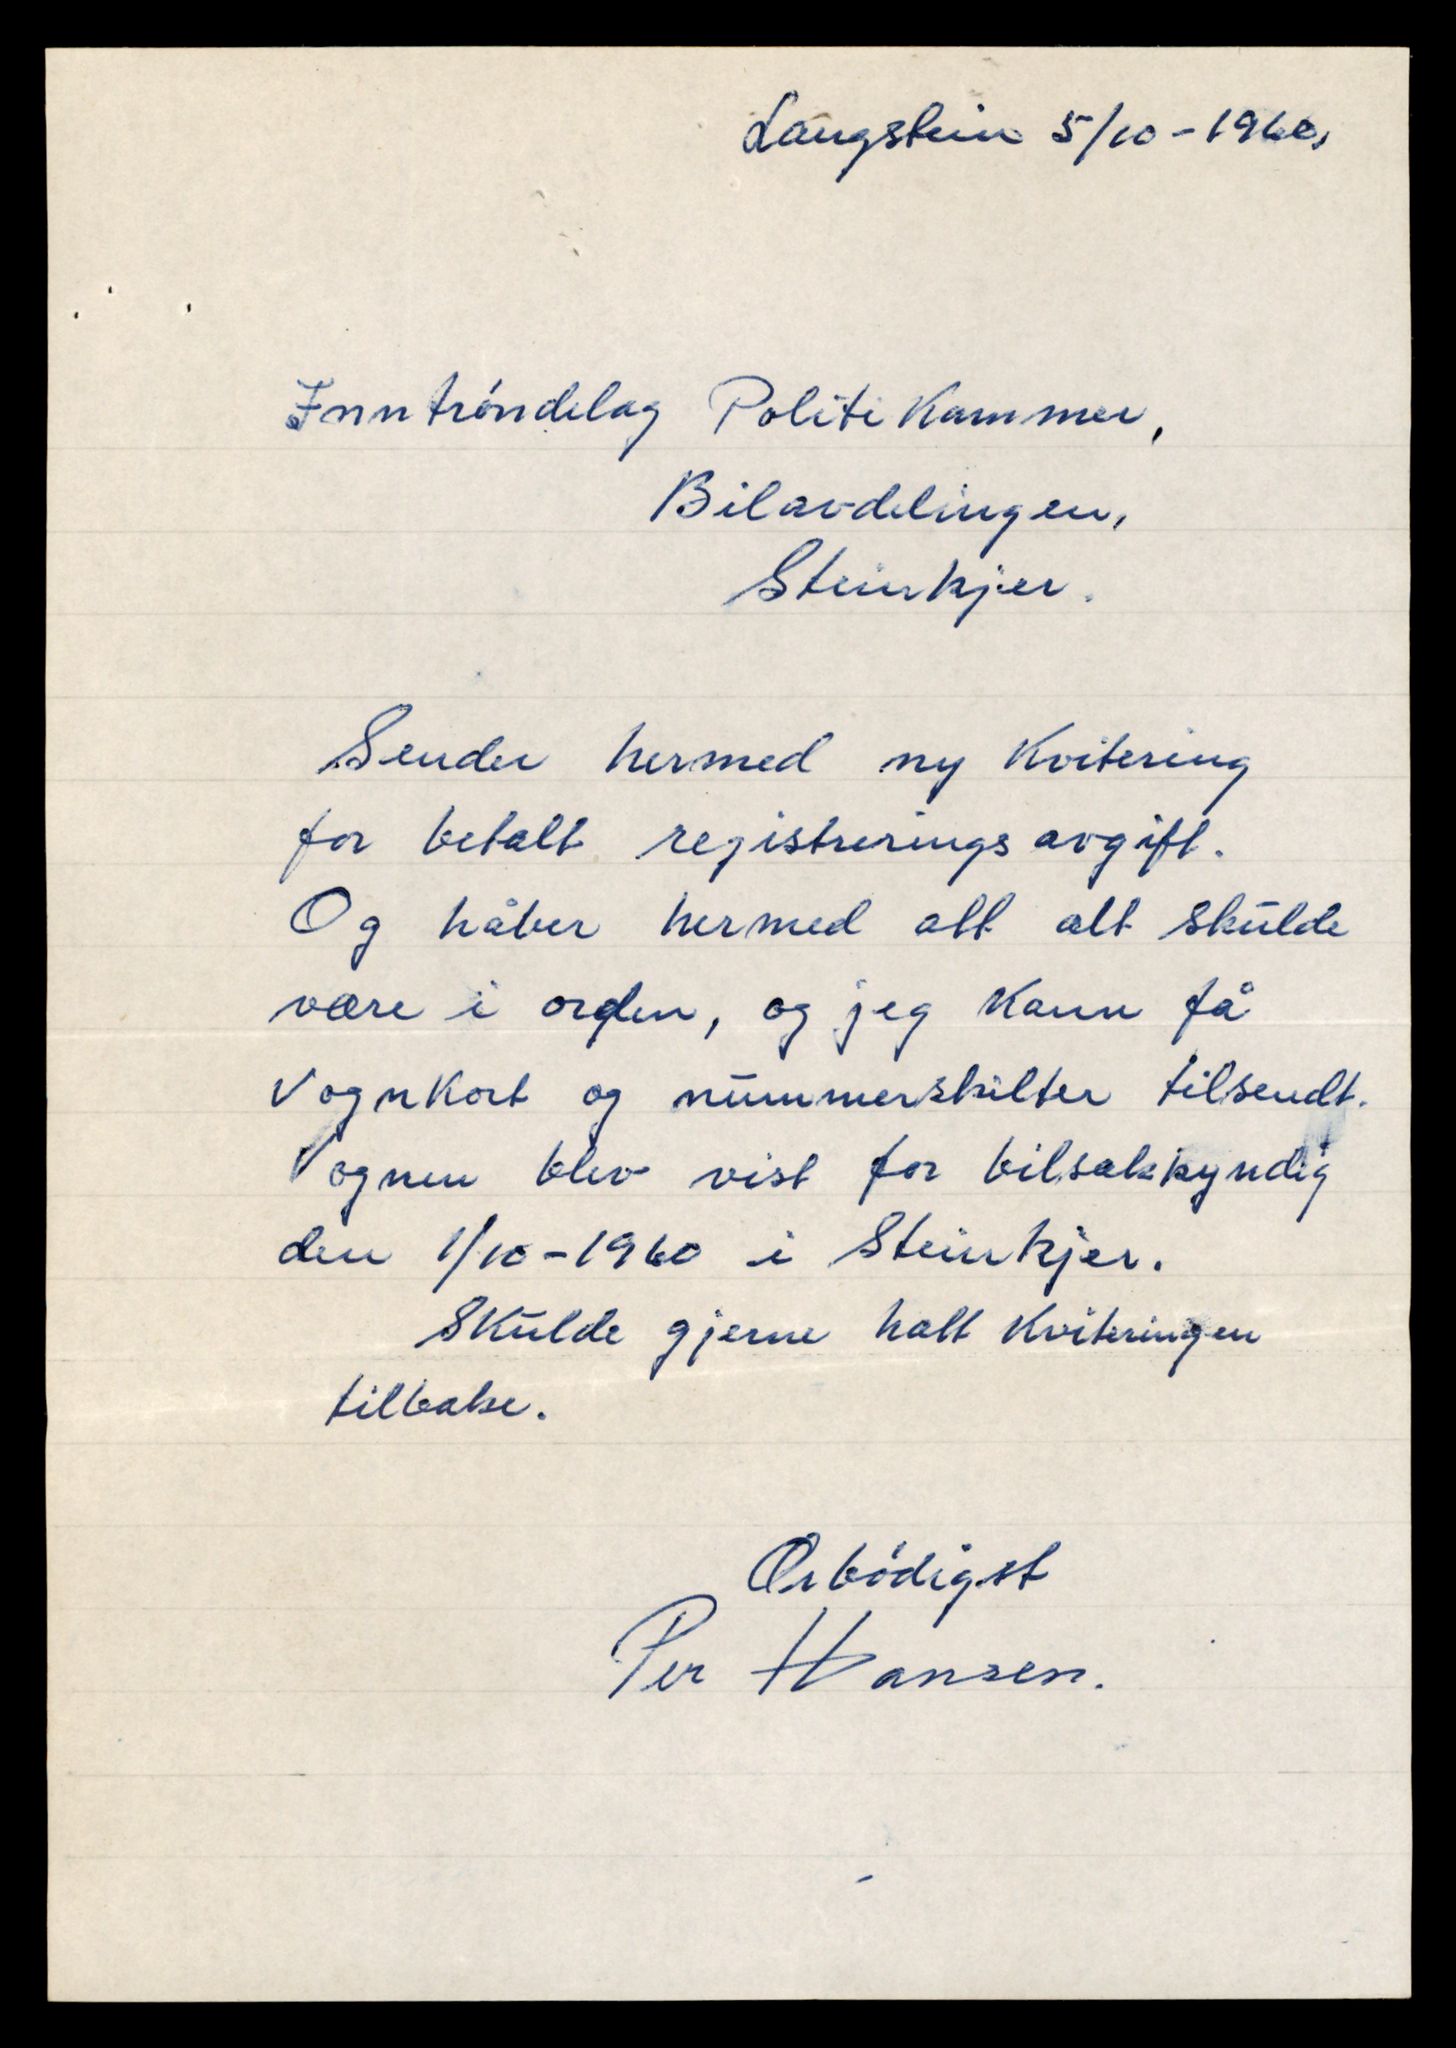 Langstein 5/10-1960.
Inntróndelag Politikammer,
Bilavdelingen,
Steinkjer.
Sender hermed ny Kvitering
for betalt registreringsavgift.
Og håber hermed att alt skulde
være i orden, og jeg kann få
Vognkort og nummerskilter tilsendt.
Vognen blev vist for bilsakkyndig
den 1/10-1960 i Steinkjer.
Skulde gjerne hatt Kviteringen
tilbake.
Ærbódigst
Per Hansen.